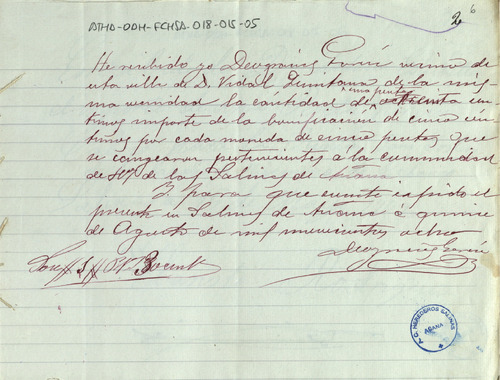 ATHA-DAH-FCHSA-018-015-05
2
6
He recibido yo Deogracias García vecino de
esta villa de D. Vidal Quintana de la mis
ma vecindad la cantidad de una peseta ochenta cen
timos importe de la bonificación de cinco cen
timos por cada moneda de cinco pesetas que
se cangearon pertenecientes á la comunidad
de de las Salinas de Añana.
Y para que conste expido el
presente en Salinas de Añana á quince
de Agosto de mil novecientos ocho
Deogracias García
Son 1 Pt 80 cent
A. G. HEREDEROS SALINAS
AÑANA